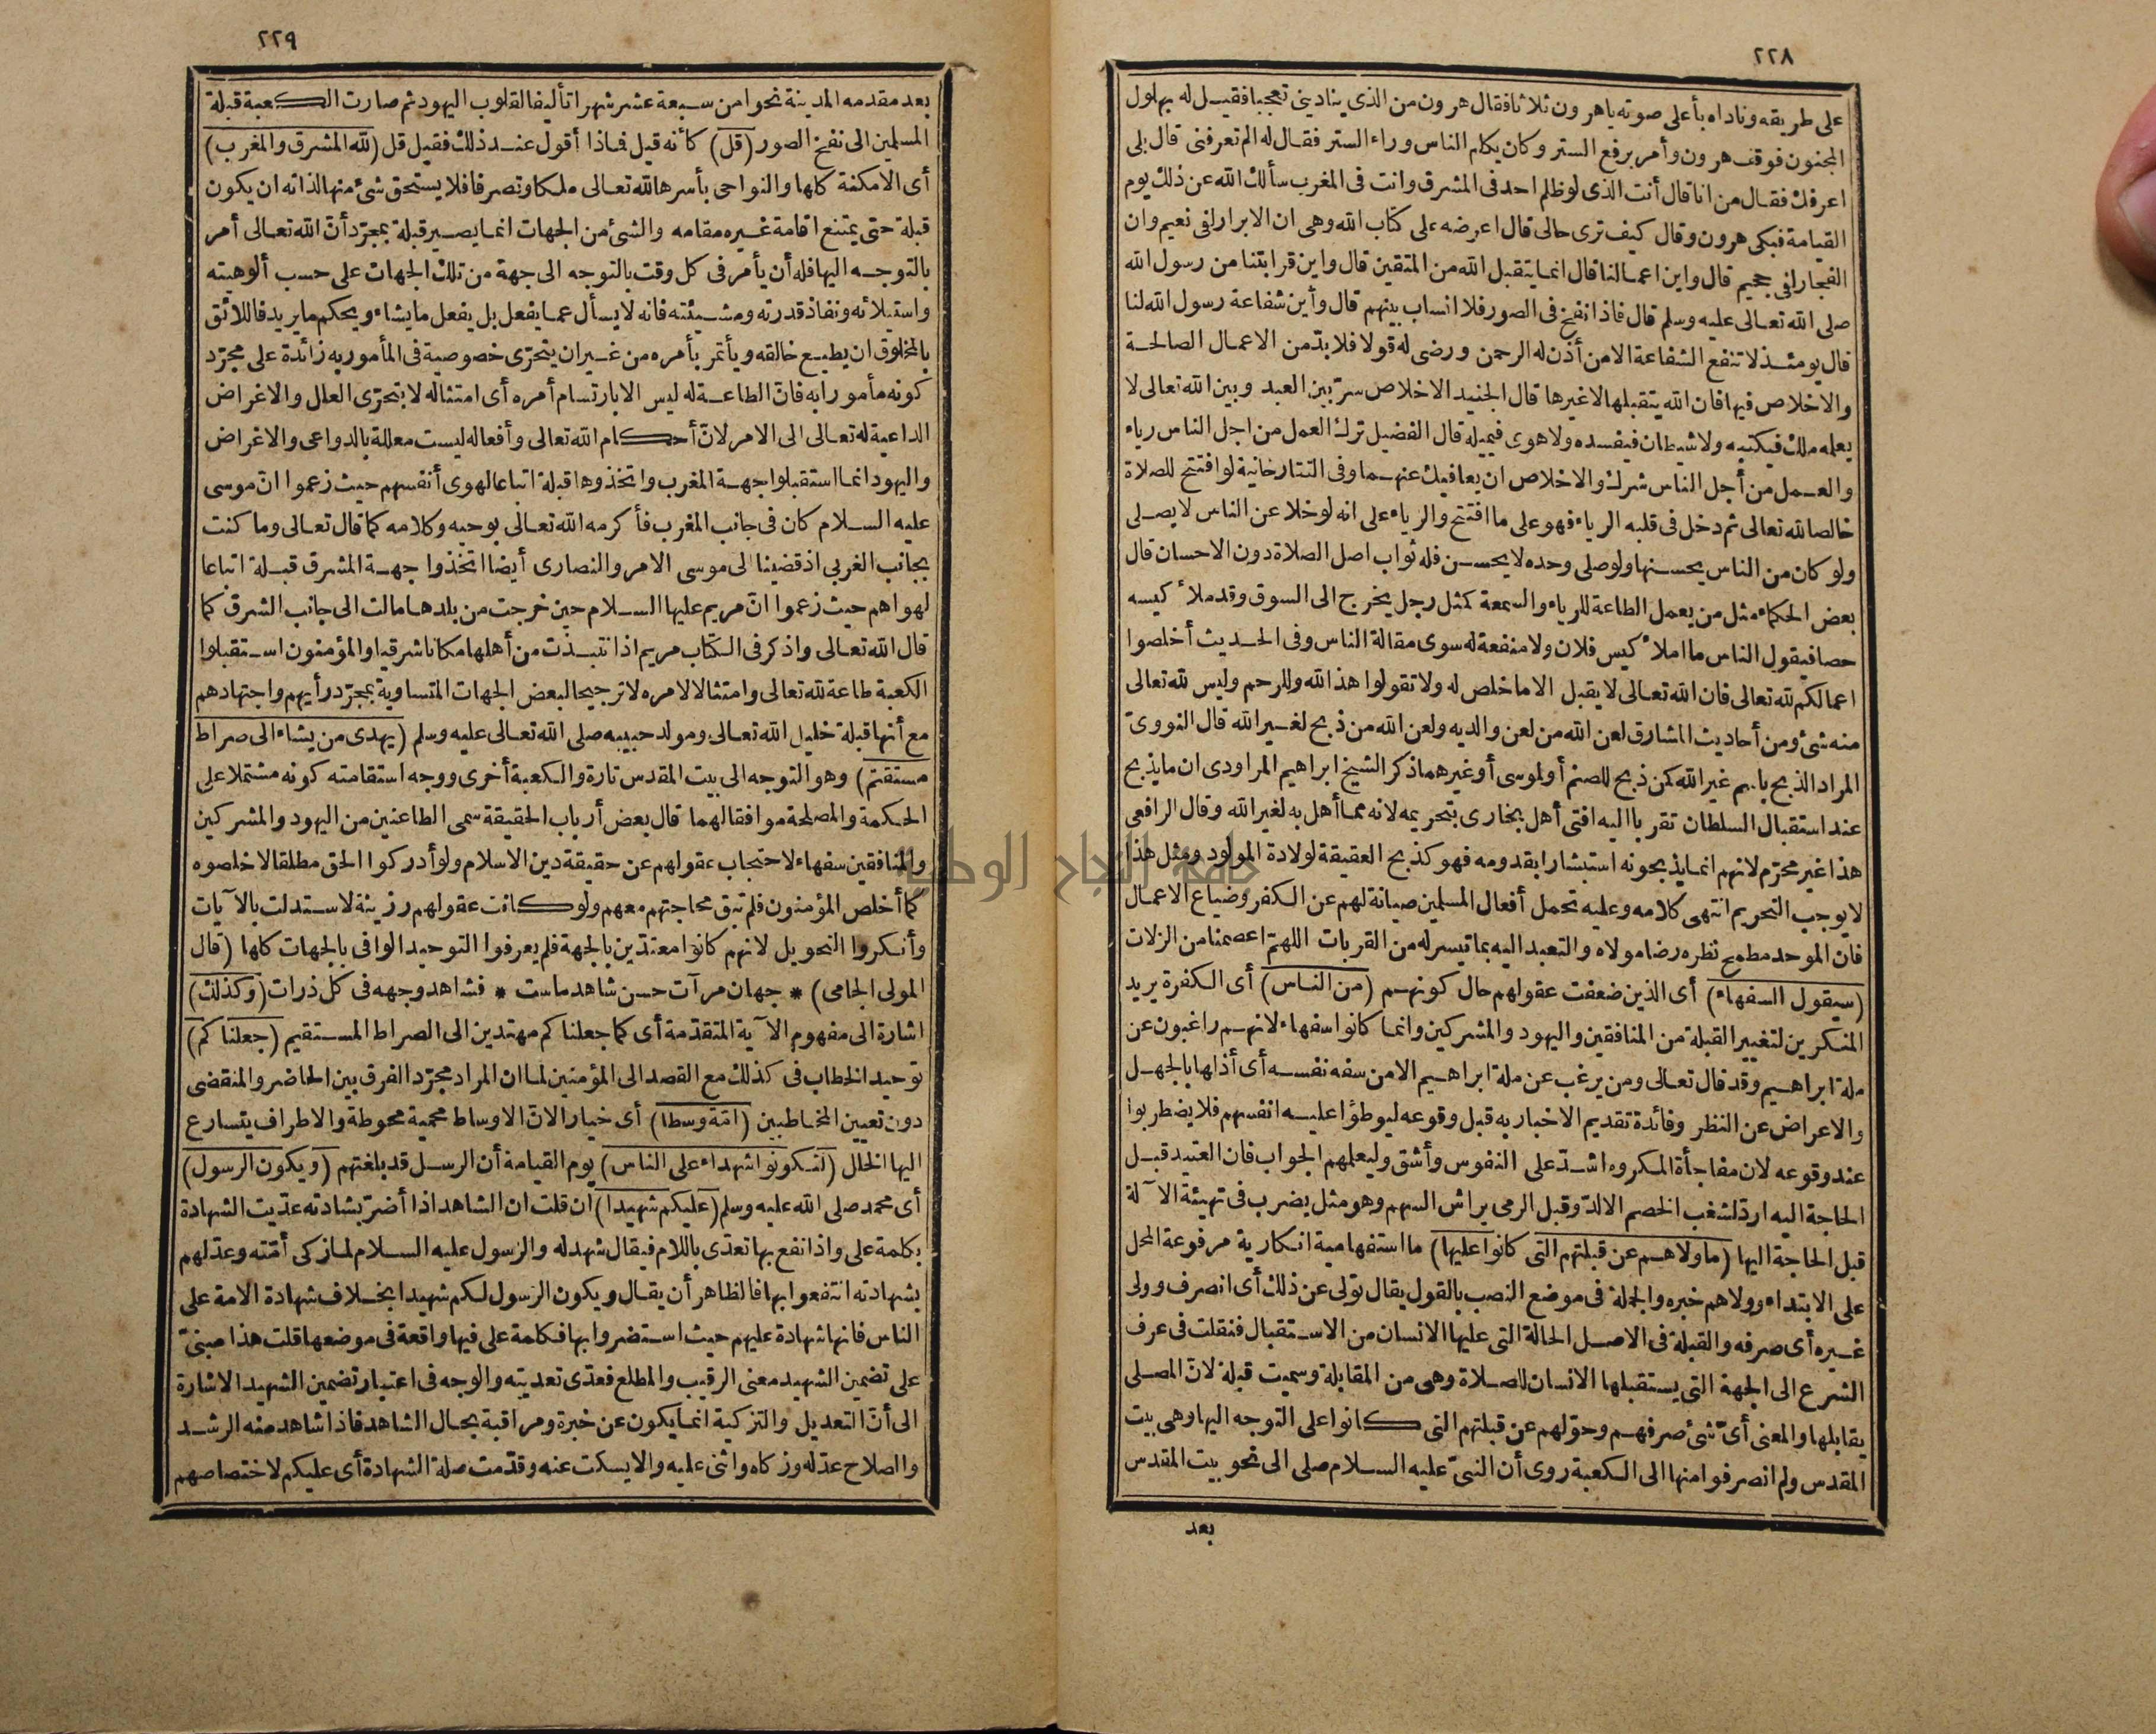 ٢٢٨
على طريقه وناداه بأعلى صوته ياهرون ثلاثا فقال هرون من الذى ينادينى تعجبا فقيل له بهلول
المجنون فوقف هرون وأمر برفع الستر وكان يكلم الناس وراء الستر فقال له الم تعرفنى قال بلى
اعرفك فقال من انا قال أنت الذى لو ظلم احد فى المشرق وانت فى المغرب سألك الله عن ذلك يوم
القيامة فبكى هرون وقال كيف ترى حالى قال اعرضه على كتاب الله وهى ان الابرار لفى نعيم وان
الفجار لفى جحيم قال واين اعمالنا قال انما يتقبل الله من المتقين قال واين قرابتنا من رسول الله
صلى الله تعالى عليه وسلم قال فاذا نفخ فى الصور فلا انساب بينهم قال وأين شفاعة رسول الله لنا
قال يومئذ لا تنفع الشفاعة الا من أذن له الرحمن ورضى له قولا فلا بدّ من الاعمال الصالحة
والاخلاص فيها فان الله يتقبلها لا غيرها قال الجنيد الاخلاص سرّ بين العبد وبين الله تعالى لا
يعلمه ملك فيكتبه ولا شيطان فيفسده ولا هوى فيميله قال الفضيل ترك العمل من اجل الناس رياء
والعمل من أجل الناس شرك والاخلاص ان يعافيك عنهما وفى التتارخانية لو افتتح للصلاة
خالصا لله تعالى ثم دخل فى قلبه الرياء فهو على ما افتتح والرياء على انه لو خلا عن الناس لا يصلى
ولو كان من الناس يحسنها ولو صلى وحده لا يحسن فله ثواب اصل الصلاة دون الاحسان قال
بعض الحكماء مثل من يعمل الطاعة للرياء والسمعة كمثل رجل يخرج الى السوق وقد ملأ كيسه
حصا فيقول الناس ما املأ كيس فلان ولا منفعة له سوى مقالة الناس وفى الحديث أخلصوا
اعمالكم لله تعالى فان الله تعالى لا يقبل الا ما خلص له ولا تقولوا هذا لله وللرحم وليس لله تعالى
منه شئ ومن أحاديث المشارق لعن الله من لعن والديه ولعن الله من ذبح لغير الله قال النووىّ
المراد الذبح باسم غير الله كمن ذبح للصنم أو لموسى أو غيرهما ذكر الشيخ ابراهيم المراودى ان ما يذبح
عند استقبال السلطان تقربا اليه افتى أهل بخارى بتحريمه لانه مما أهل به لغير الله وقال الرافعى
هذا غير محرّم لانهم انما يذبحونه استبشارا بقدومه فهو كذبح العقيقة لولادة المولود ومثل هذا
لا يوجب التحريم انتهى كلامه وعليه تحمل أفعال المسلمين صيانة لهم عن الكفر وضياع الاعمال
فانّ الموحد مطمح نظره رضا مولاه والتعبد اليه بما تيسر له من القربات اللهمّ اعصمنا من الزلات
(سيقول السفهاء) أى الذين ضعفت عقولهم حال كونهم (من الناس) أى الكفرة يريد
المنكرين لتغيير القبلة من المنافقين واليهود والمشركين وانما كانوا سفهاء لانهم راغبون عن
ملة ابراهيم وقد قال تعالى ومن يرغب عن ملة ابراهيم الا من سفه نفسه أى أذلها بالجهل
والاعراض عن النظر وفائدة تقديم الاخبار به قبل وقوعه ليوطؤا عليه انفسهم فلا يضطربوا
عند وقوعه لان مفاجأة المكروه اشدّ على النفوس وأشق وليعلمهم الجواب فان العتيد قبل
الحاجة اليه اردّ لشغب الخصم الالدّ وقبل الرمى يراش السهم وهو مثل يضرب فى تهيئة الآلة
قبل الحاجة اليها (ما ولاهم عن قبلتهم التى كانوا عليها) ما استفهامية انكارية مرفوعة المحل
على الابتداء وولاهم خبره والجملة فى موضع النصب بالقول يقال تولى عن ذلك أى انصرف وولى
غيره أى صرفه والقبلة فى الاصل الحالة التى عليها الانسان من الاستقبال فنقلت فى عرف
الشرع الى الجهة التى يستقبلها الانسان للصلاة وهى من المقابلة وسميت قبلة لانّ المصلى
يقابلها والمعنى أىّ شئ صرفهم وحوّلهم عن قبلتهم التى كانوا على التوجه اليها وهى بيت
المقدس ولم انصرفوا منها الى الكعبة روى أن النبىّ عليه السلام صلى الى نحو بيت المقدس
بعد
٢٢٩
بعد مقدمه المدينة نحوا من سبعة عشر شهرا تأليفا لقلوب اليهود ثم صارت الكعبة قبلة
المسلمين الى نفخ الصور (قل) كأنه قيل فماذا أقول عند ذلك فقيل قل (لله المشرق والمغرب)
أى الامكنة كلها والنواحى بأسرها لله تعالى ملكا وتصرفا فلا يستحق شئ منها لذاته ان يكون
قبلة حتى يمتنع اقامة غيره مقامه والشئ من الجهات انما يصير قبلة بمجرّد أنّ الله تعالى أمر
بالتوجه اليها فله أن يأمر فى كل وقت بالتوجه الى جهة من تلك الجهات على حسب ألوهيته
واستيلائه ونفاذ قدرته ومشيئته فانه لا يسأل عما يفعل بل يفعل ما يشاء ويحكم ما يريد فاللائق
بالمخلوق ان يطيع خالقه ويأتمر بأمره من غير ان يتحرّى خصوصية فى المأمور به زائدة على مجرّد
كونه مأمورا به فانّ الطاعة له ليس الا بارتسام أمره أى امتثاله لا بتحرّى العلل والاغراض
الداعية له تعالى الى الامر لانّ أحكام الله تعالى وأفعاله ليست معللة بالدواعى والاغراض
واليهود انما استقبلوا جهة المغرب واتخذوها قبلة اتباعا لهوى أنفسهم حيث زعموا انّ موسى
عليه السلام كان فى جانب المغرب فأكرمه الله تعالى بوحيه وكلامه كما قال تعالى وما كنت
بجانب الغربى اذ قضينا الى موسى الامر والنصارى أيضا اتخذوا جهة المشرق قبلة اتباعا
لهواهم حيث زعموا انّ مريم عليها السلام حين خرجت من بلدها مالت الى جانب الشرق كما
قال الله تعالى واذكر فى الكتاب مريم اذ انتبذت من أهلها مكانا شرقيا والمؤمنون استقبلوا
الكعبة طاعة لله تعالى وامتثالا لامره لا ترجيحا لبعض الجهات المتساوية بمجرّد رأيهم واجتهادهم
مع أنها قبلة خليل الله تعالى ومولد حبيبه صلى الله تعالى عليه وسلم (يهدى من يشاء الى صراط
مستقيم) وهو التوجه الى بيت المقدس تارة والكعبة أخرى ووجه استقامته كونه مشتملا على
الحكمة والمصلحة موافقا لهما قال بعض أرباب الحقيقة سمى الطاعنين من اليهود والمشركين
والمنافقين سفهاء لاحتجاب عقولهم عن حقيقة دين الاسلام ولو أدركوا الحق مطلقا لاخلصوه
كما أخلص المؤمنون فلم تبق محاجتهم معهم ولو كانت عقولهم رزينة لاستدلت بالآيات
وأنكروا التحويل لانهم كانوا معتدّين بالجهة فلم يعرفوا التوحيد الوافى بالجهات كلها (قال
المولى الجامى) * جهان مرآت حسن شاهد ماست * فشاهد وجهه فى كل ذرات (وكذلك)
اشارة الى مفهوم الآية المتقدّمة أى كما جعلناكم مهتدين الى الصراط المستقيم (جعلناكم)
توحيد الخطاب فى كذلك مع القصد الى المؤمنين لما ان المراد مجرّد الفرق بين الحاضر والمنقضى
دون تعيين المخاطبين (امّة وسطا) أى خيارا لانّ الاوساط محمية محوطة والاطراف يتسارع
اليها الخلل (لتكونوا شهداء على الناس) يوم القيامة أن الرسل قد بلغتهم (ويكون الرسول)
أى محمد صلى الله عليه وسلم (عليكم شهيدا) ان قلت ان الشاهد اذا أضرّ بشادته عدّيت الشهادة
بكلمة على واذا نفع بها تعدّى باللام فيقال شهد له والرسول عليه السلام لما زكى أمّته وعدّلهم
بشهادته انتفعوا بها فالظاهر أن يقال ويكون الرسول لكم شهيدا بخلاف شهادة الامة على
الناس فانها شهادة عليهم حيث استضروا بها فكلمة على فيها واقعة فى موضعها قلت هذا مبنىّ
على تضمين الشهيد معنى الرقيب والمطلع فعدّى تعديته والوجه فى اعتبار تضمين الشهيد الاشارة
الى أنّ التعديل والتزكية انما يكون عن خبرة ومراقبة بحال الشاهد فاذا شاهد منه الرشد
والصلاح عدّله وزكاه واثنى عليه والا يسكت عنه وقدّمت صلة الشهادة أى عليكم لاختصاصهم
جامعة النجاح الوطنية